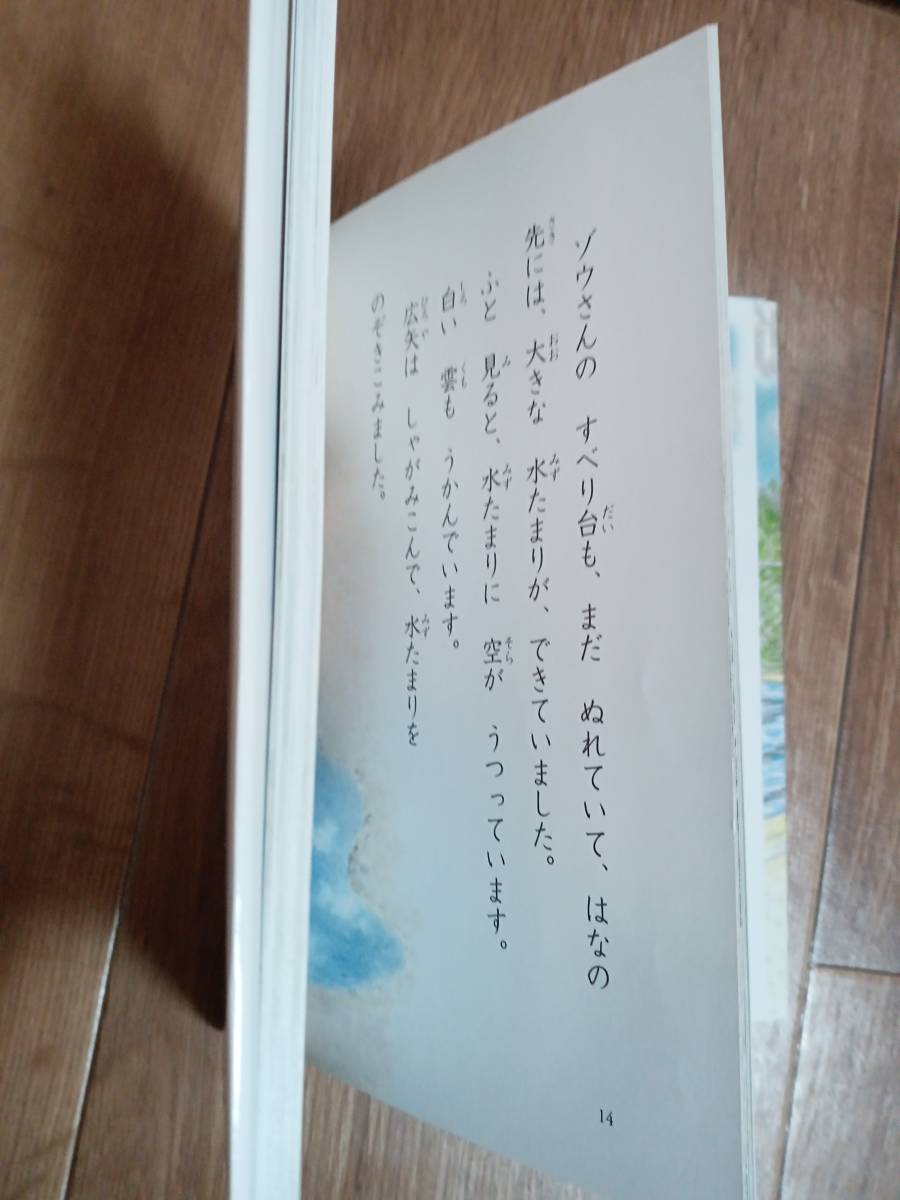 ゾウさんの　すべり台も、まだ　ぬれていて、はなの
先には、大きな　水たまりが、できていました。
ふと　見ると、水たまりに　空が　うつっています。
白い　雲も　うかんでいます。
広矢は　しゃがみこんで、水たまりを
のぞきこみました。
14